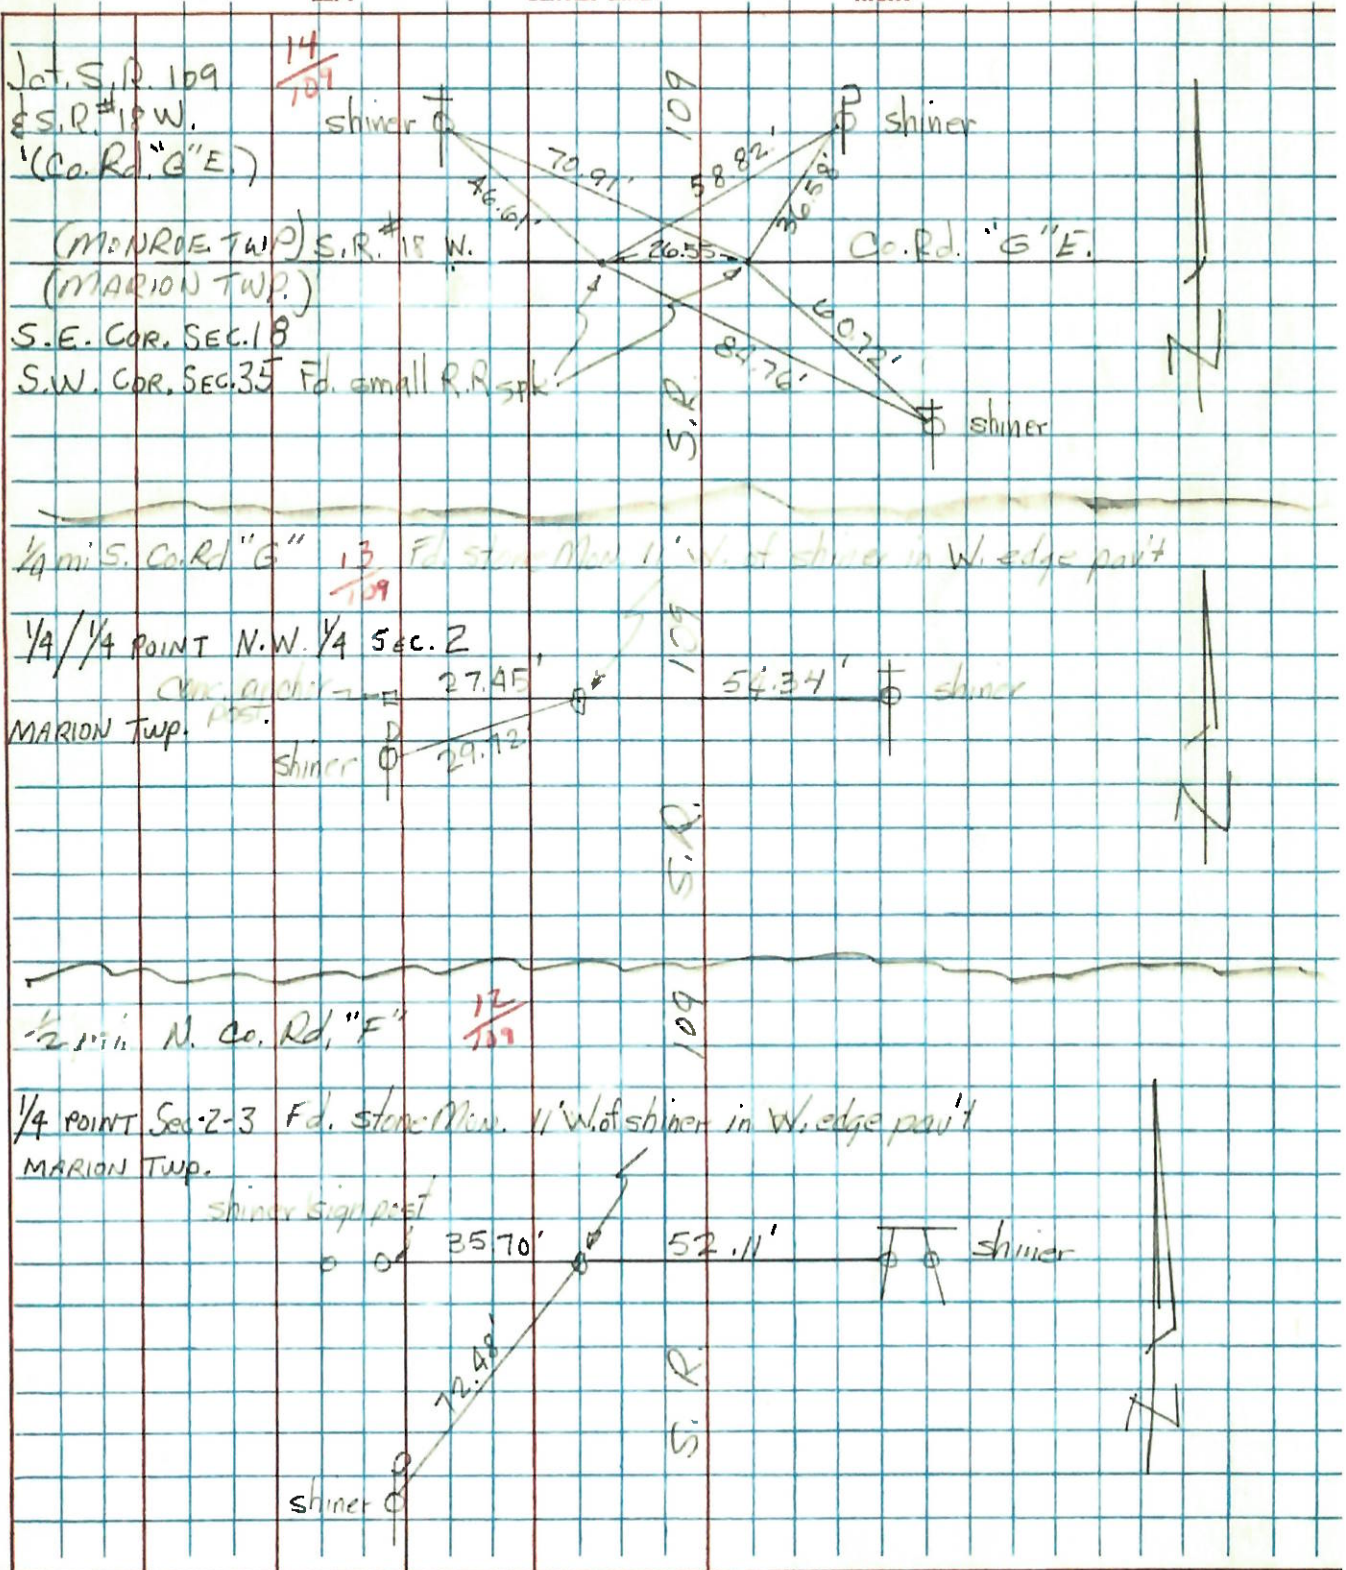 Jct. S.R. 109
14/109
& S.R. #18 W.
(Co. Rd. "G" E.)
shiner
109
shiner
70.91'
58.82'
46.61'
36.58'
(MONROE TWP) S.R. #18 W.
26.55
Co. Rd. "G" E.
(MARION TWP.)
S.E. COR. SEC. 18
60.72'
84.76'
S.W. COR. SEC. 35 Fd. small R.R spk
S.R.
shiner
1/4 mi S. Co. Rd "G"
13/109
Fd. stone Mon. 11' W. of shiner in W. edge pav't
109
1/4 / 1/4 POINT N.W. 1/4 SEC. 2
conc. anchor post
27.45'
54.34'
shiner
MARION TWP.
shiner
29.72'
S.R.
1/2 mi. N. Co. Rd. "F"
12/109
109
1/4 POINT Sec. 2-3 Fd. stone Mon. 11' W. of shiner in W. edge pav't
MARION TWP.
shiner sign post
35.70'
52.11'
shiner
72.48'
S. R.
shiner
N
N
N